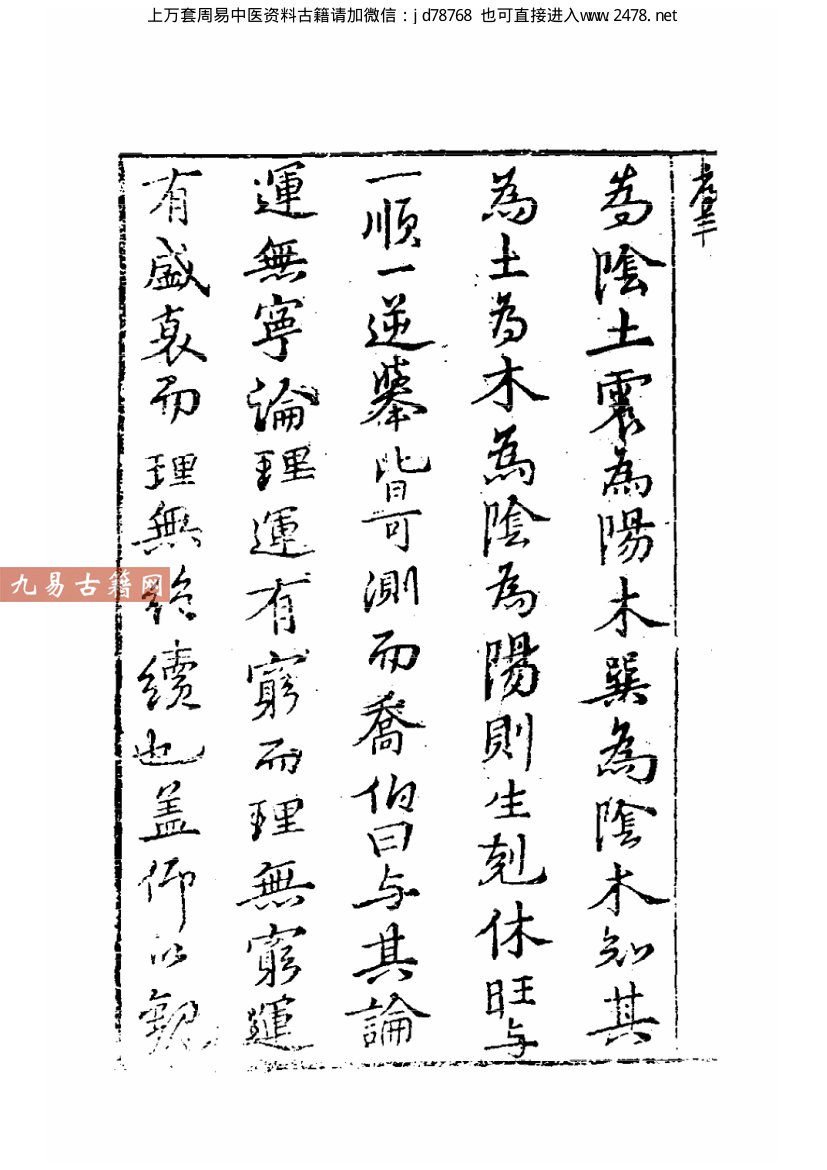 上万套周易中医资料古籍请加微信：jd78768 也可直接进入www.2478.net
為陰土震為陽木巽為陰木知其
為土為木為陰為陽則生剋休旺与
一順一逆墓皆可測而喬伯曰与其論
運無寧論理運有窮而理無窮運
有盛衰而理無絶續也盖仰以觀
九易古籍网